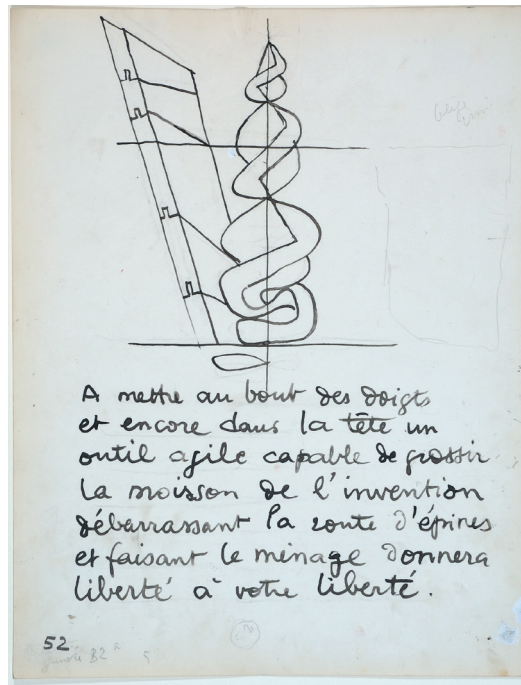 A mettre au bout des doigts
et encore dans la tête un
outil agile capable de grossir
la moisson de l'invention
débarrassant la route d'épines
et faisant le ménage donnera
liberté à votre liberté.
52
B2
5